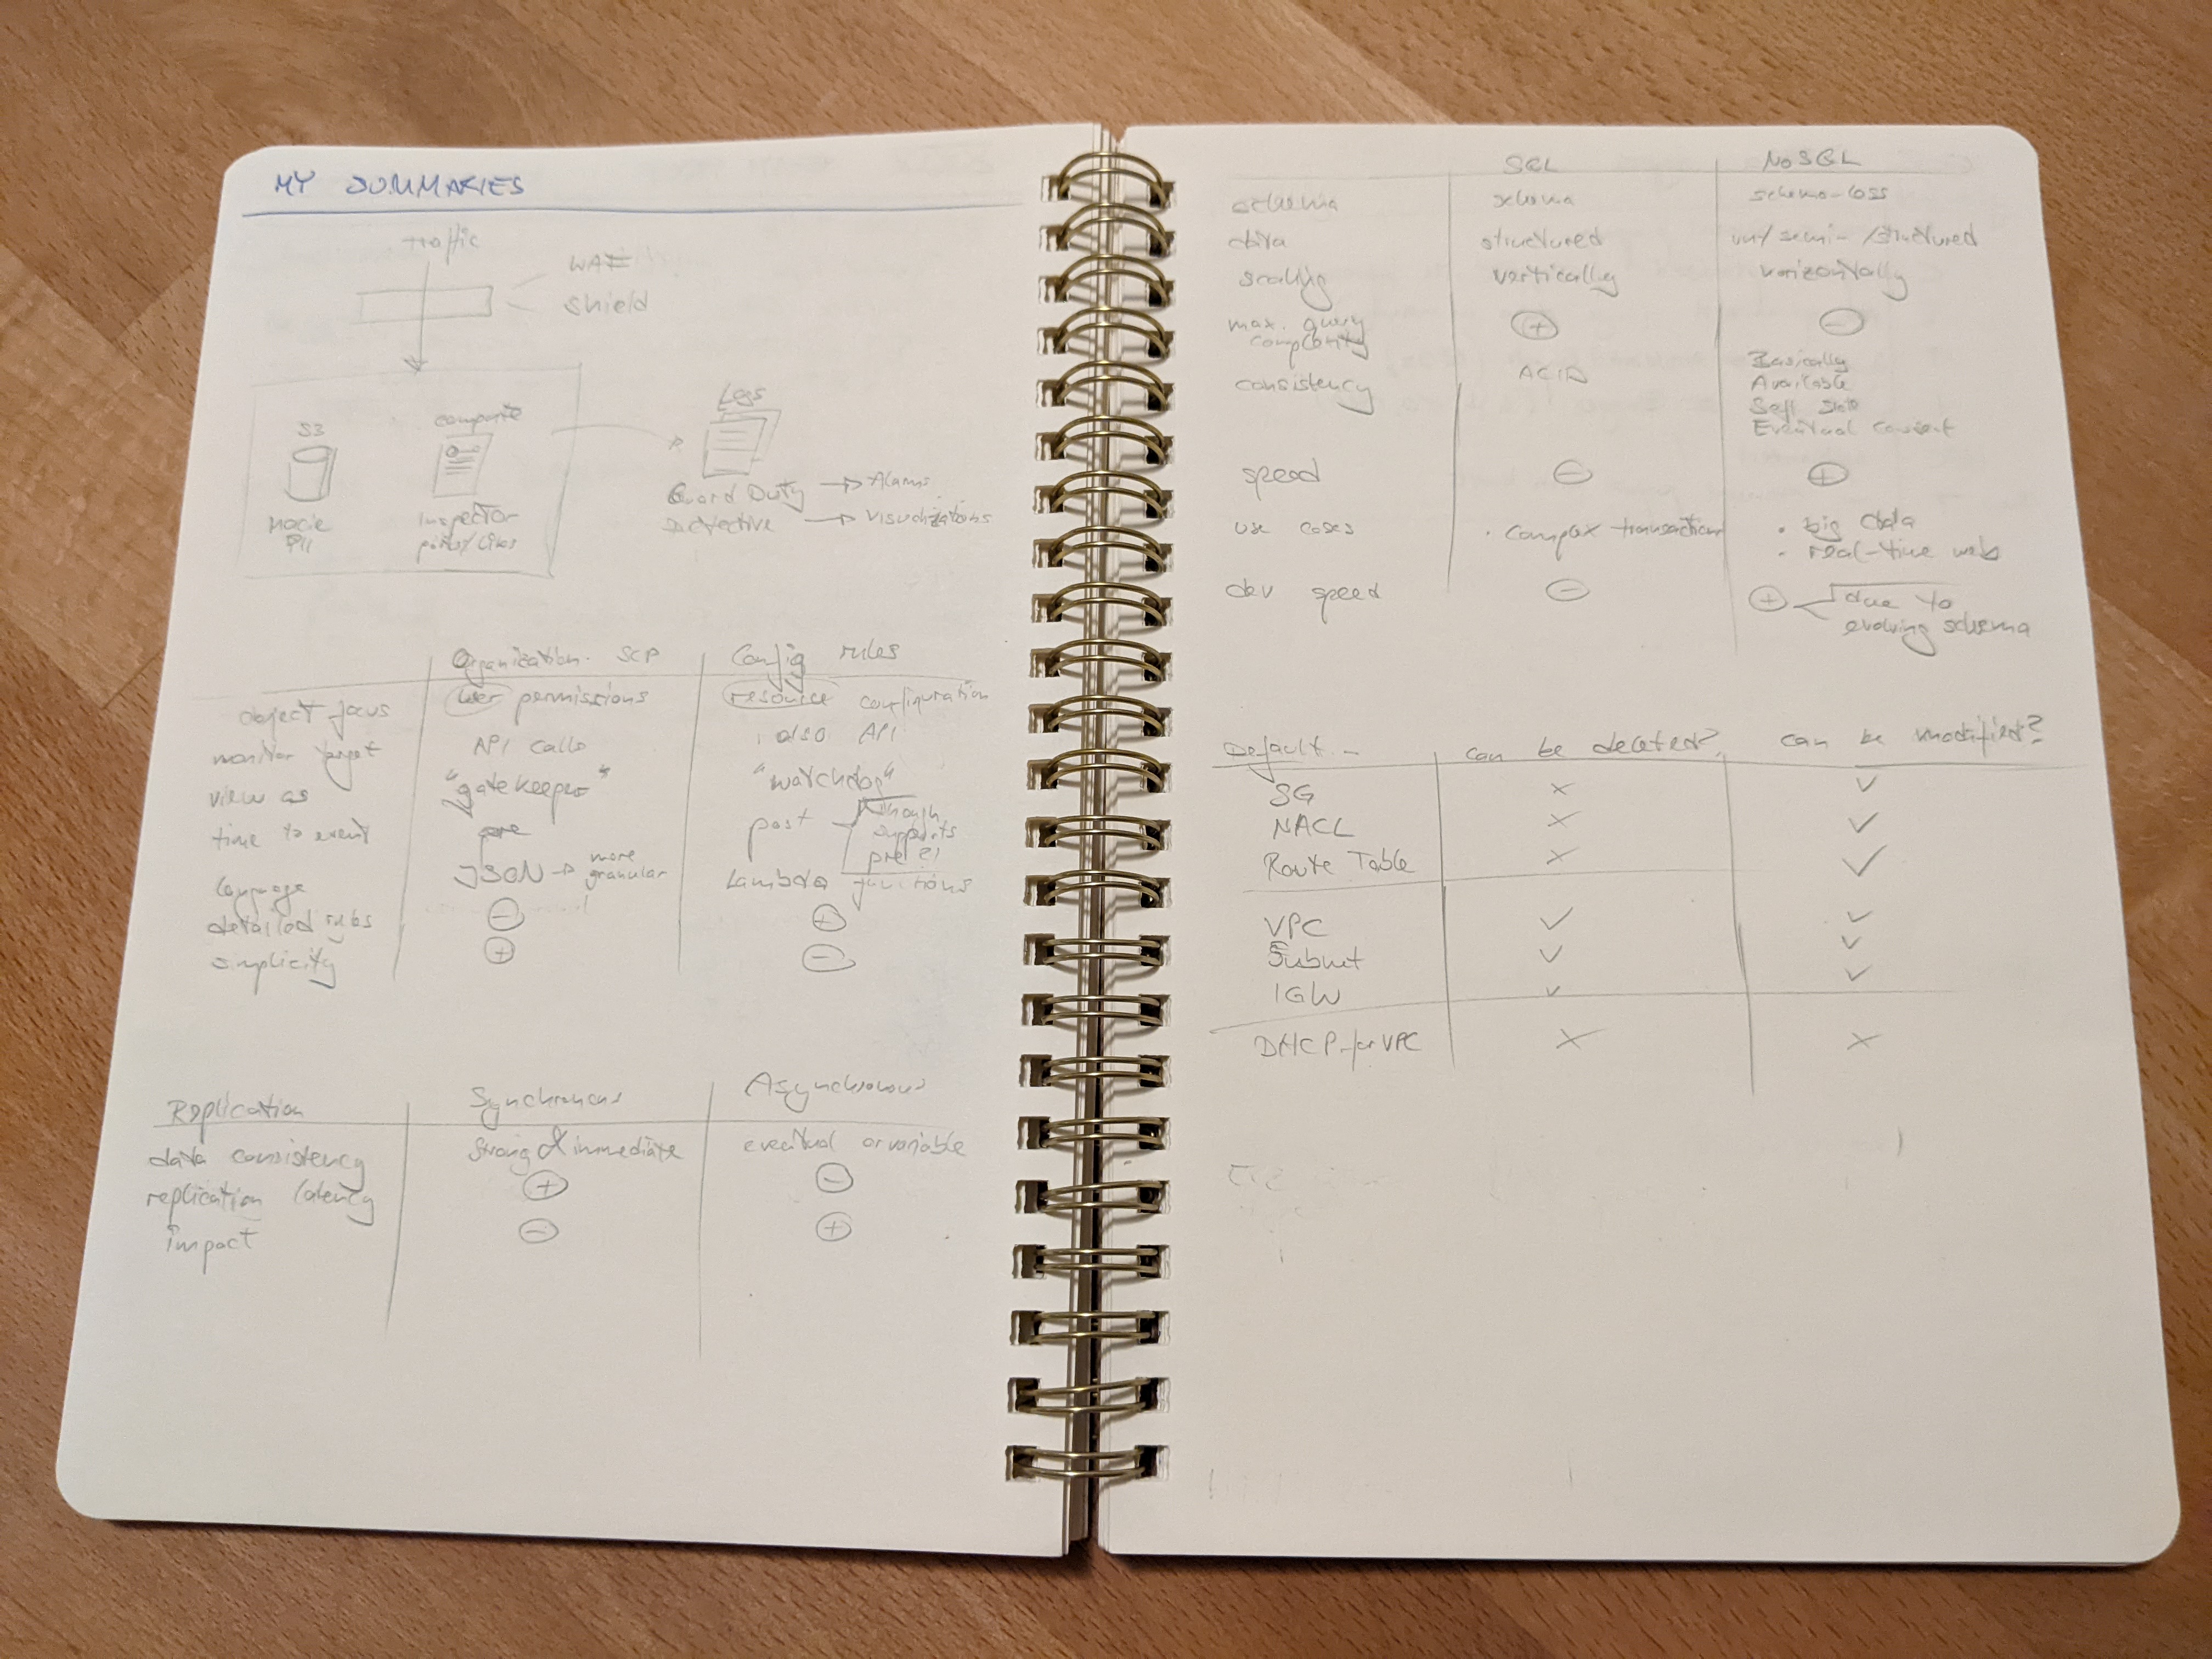 MY SUMMARIES
Traffic
WAF
Shield
S3
compute
Logs
Macie
PII
Inspector
Guard Duty → Alarms
Detective → Visualizations
Organization. SCP Config rules
object focus user permissions resource configuration
monitor target API calls also API
view as "gatekeeper" "watchdog"
time to event pre post though supports pre
language JSON → more granular Lambda functions
detailed rules - +
simplicity + -
Replication Synchronous Asynchronous
data consistency strong & immediate eventual or variable
replication latency + -
impact - +
SQL NoSQL
schema schema schema-less
data structured un/semi-/structured
scaling vertically horizontally
max. query complexity + -
consistency ACID Basically
Available
Soft State
Eventual consist
speed - +
use cases · complex transactions · big data
· real-time web
dev speed - + due to
evolving schema
Default... can be deleted? can be modified?
SG × ✓
NACL × ✓
Route Table × ✓
VPC ✓ ✓
Subnet ✓ ✓
IGW ✓ ✓
DHCP for VPC × ×